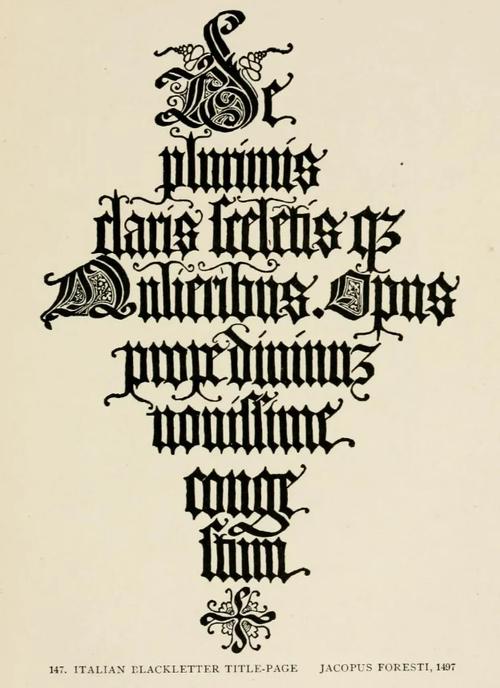 De
plurimis
claris sceletis qꝫ
Mulieribus. Opus
prope diuinuꝫ
nouissime
conge
stum
147. ITALIAN BLACKLETTER TITLE-PAGE JACOPUS FORESTI, 1497